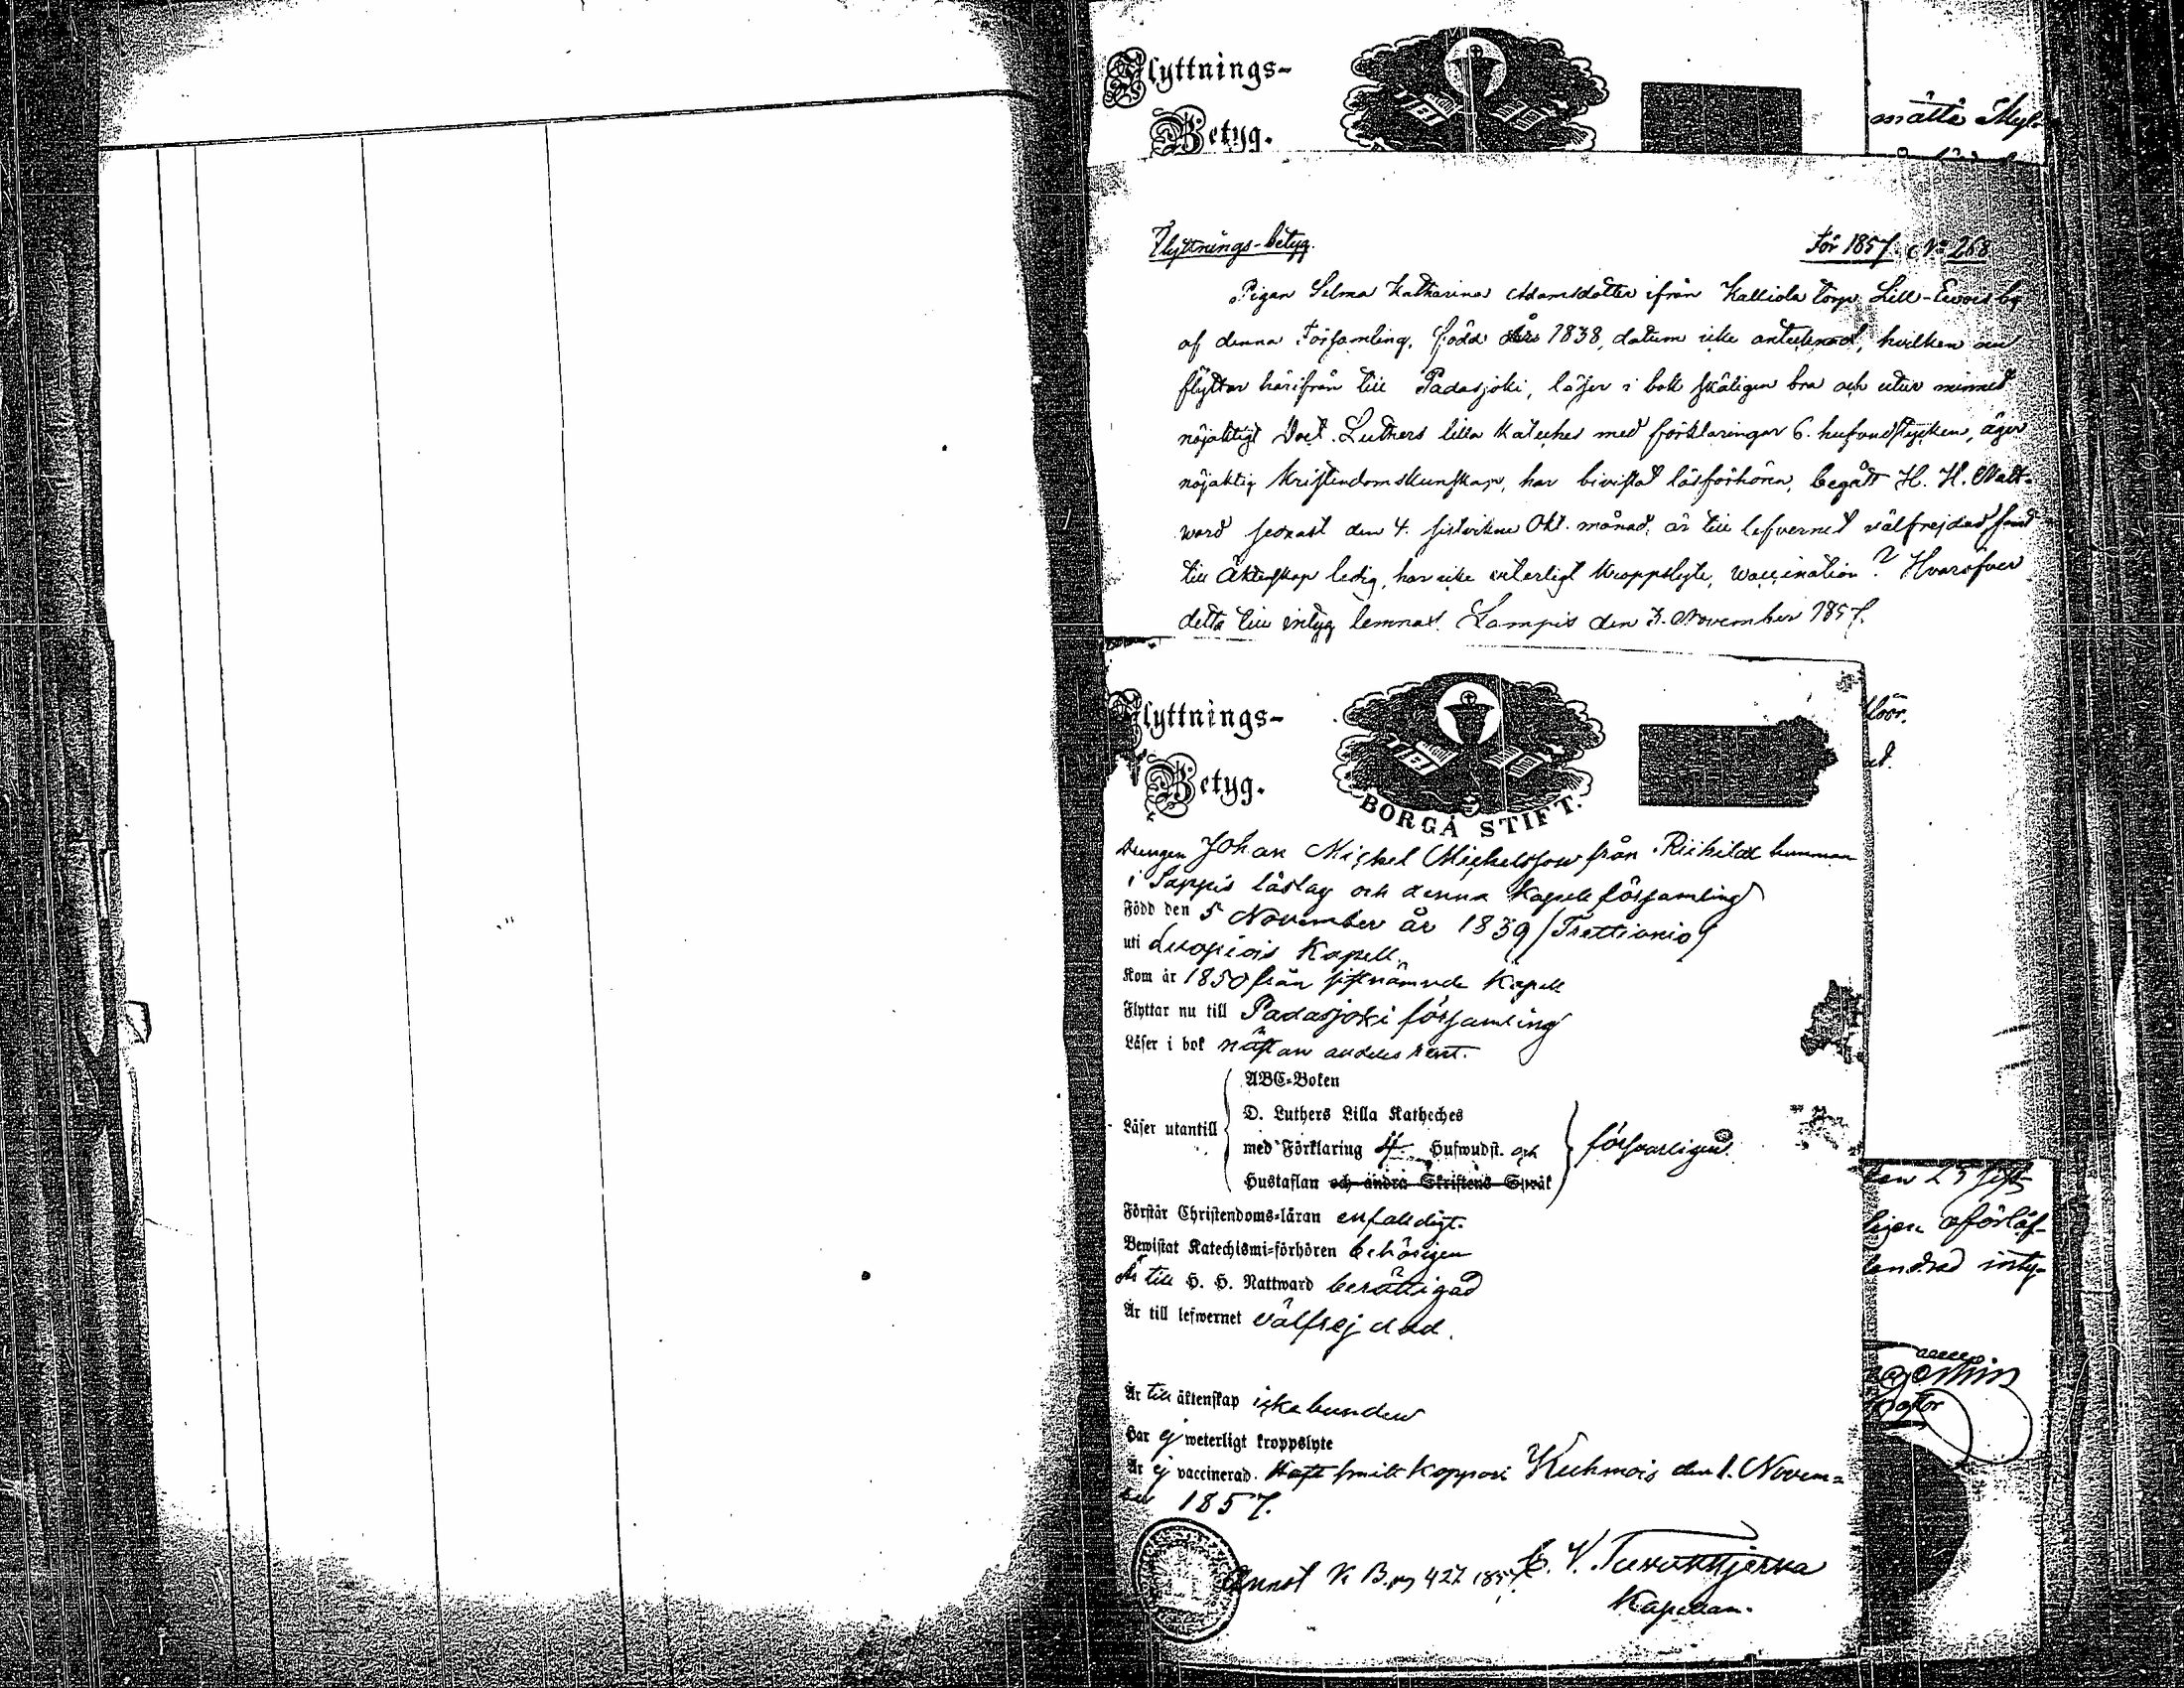 Flyttnings-
Betyg.
måtte
Flyttnings-betyg.
För 1857. No 268
Pigan Selma Katharina Adamsdotter ifrån Kalliola torp Lill-Evois by
af denna Församling, född år 1838, datum icke antecknad, hvilken nu
flyttar härifrån till Padasjoki, läser i bok skäligen bra och utur minnet
nöjaktigt Doct. Luthers lilla Kateches med förklaringar 6. hufvudstycken, äger
nöjaktig Kristendomskunskap, har bivistat läsförhören, begått H. H. Natt-
ward senast den 4. sistvikne Okt. månad, är till lefvernet välfrejdad samt
till Äktenskap ledig, har icke veterligt kroppslyte, waccination? Hvaröfver
detta till intyg lemnas. Lampis den 3. November 1857.
Flyttnings-
Betyg.
BORGÅ STIFT.
Drengen Johan Michel Michelsson från Riihilax hemman
i Sappis läslag och denna Kapellförsamling
Född den 5 November år 1839 /Trettionio/
uti Luopiois Kapell.
Kom år 1850 från sistnämnde Kapell
Flyttar nu till Padasjoki församling
Läser i bok nästan alldeles rent.
ABC-Boken
D. Luthers Lilla Katheches
Läser utantill
med Förklaring 4 Hufwudst. och
försvarligen.
Hustaflan och andra Skriftens Språk
Förstår Christendoms-läran enfaldigt.
Bewistat Katechismi-förhören behörigen
Är till H. H. Nattward berättigad
Är till lefwernet välfrejdad.
Är till äktenskap icke bunden
Har ej weterligt kroppslyte
Är ej vaccinerad. Haft smittkoppor. Kuhmois den 1. Novem=
ber 1857.
Annot K. B. pag 427. 1857.
Kapellan.
den 23 sist-